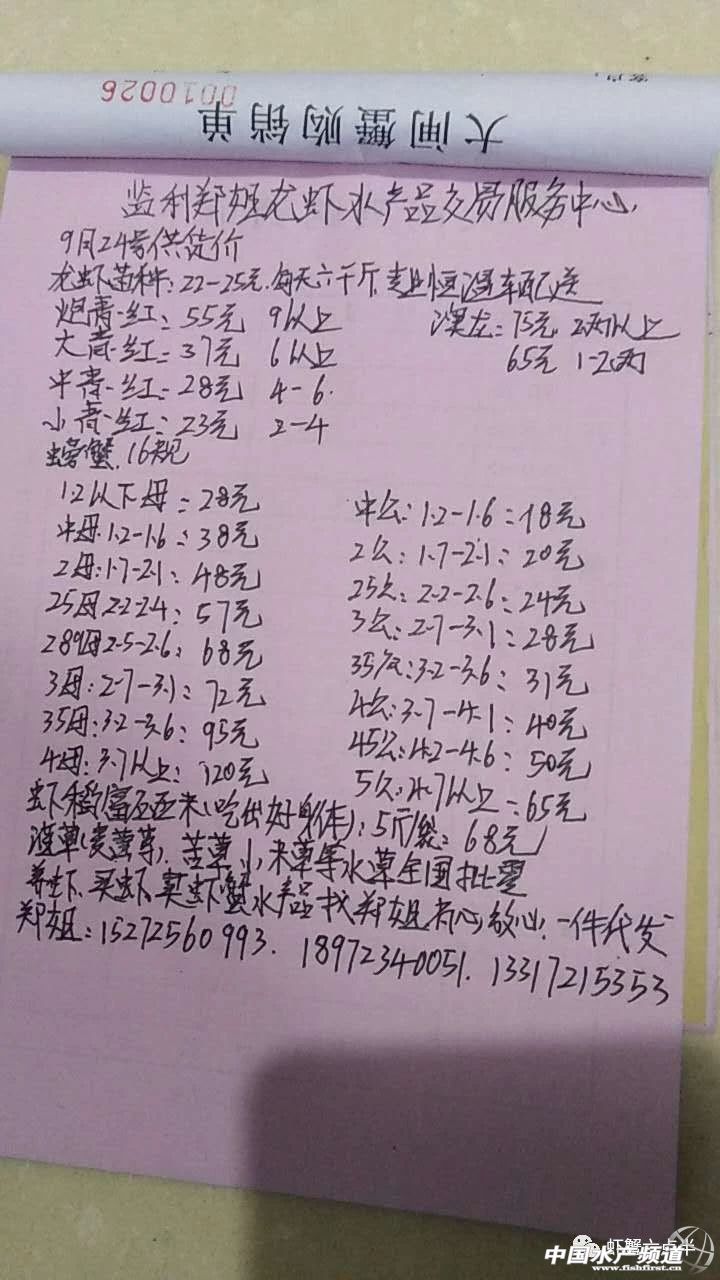 0010026
大闸蟹购销单
监利郑姐龙虾水产品交易服务中心
9月24号供货价
龙虾苗种:22-25元.每天六千斤.专业恒温车配送
炮青·红:55元 9以上
澳龙:75元 2两以上
大青·红:37元 6以上
65元 1-2两
中青·红:28元 4-6.
小青·红:23元 2-4
螃蟹.16规
1.2以下母:28元
中公:1.2-1.6:18元
中母1.2-1.6:38元
2公:1.7-2.1:20元
2母:1.7-2.1:48元
25公:2.2-2.6:24元
25母2.2-2.4:57元
3公:2.7-3.1:28元
289母2.5-2.6:68元
35公:3.2-3.6:31元
3母:2.7-3.1:72元
4公:3.7-4.1:40元
35母:3.2-3.6:95元
45公:4.2-4.6:50元
4母:3.7以上:120元
5公:4.7以上:65元
虾稻富硒米(吃出好身体):5斤/袋:68元
苦草、小米草等水草全国批发
养虾、买虾、卖虾蟹水产品找郑姐省心放心!一件代发
郑姐:15272560993. 18972340051. 13317215353
虾蟹六点半
中国水产频道
www.fishfirst.cn